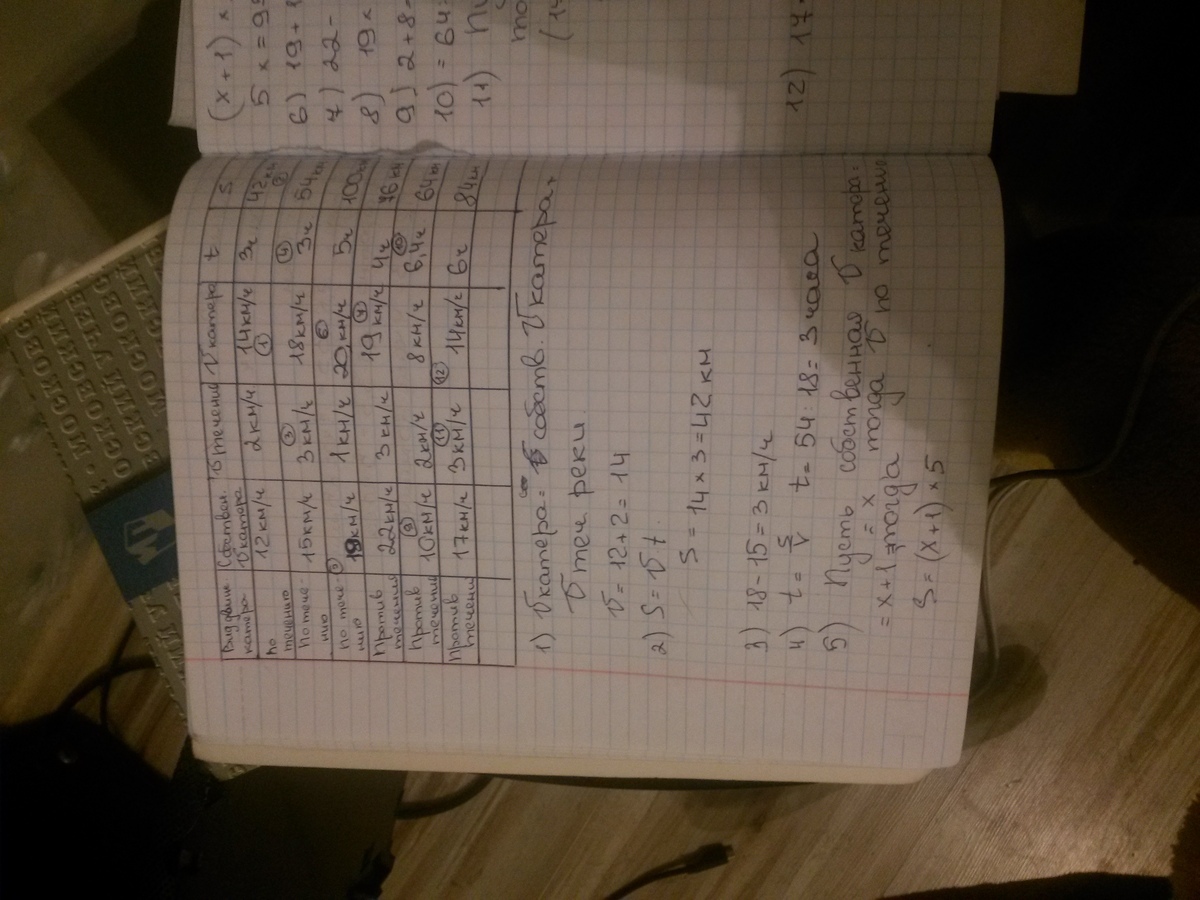 Вид движ. катера | Собствен. v катера | v течения | v катера | t | S
По течению | 12 км/ч | 2 км/ч | 14 км/ч ① | 3ч | 42 км ②
По течению | 15 км/ч | 3 км/ч ③ | 18 км/ч | 3ч ④ | 54 км
По течению | 19 км/ч ⑤ | 1 км/ч | 20 км/ч ⑥ | 5ч | 100 км
Против течения | 22 км/ч | 3 км/ч | 19 км/ч ⑦ | 4ч | 76 км
Против течения | 10 км/ч ⑨ | 2 км/ч | 8 км/ч | 6,4ч ⑩ | 64 км
Против течения | 17 км/ч | 3 км/ч ⑪ | 14 км/ч ⑫ | 6ч | 84 км
1) v катера = v собств. v катера +
v теч реки.
v = 12 + 2 = 14
2) S = v t.
S = 14 x 3 = 42 км
3) 18 - 15 = 3 км/ч
4) t = S/v t = 54 : 18 = 3 часа
5) Пусть собственная v катера =
= x тогда v по течению
= x + 1, тогда
S = (x + 1) x 5
(x + 1) x
5 x = 9
6) 19 +
7) 22 -
8) 19 x
9) 2 + 8
10) = 64
11)
(1
12) 17
МОСКОВС